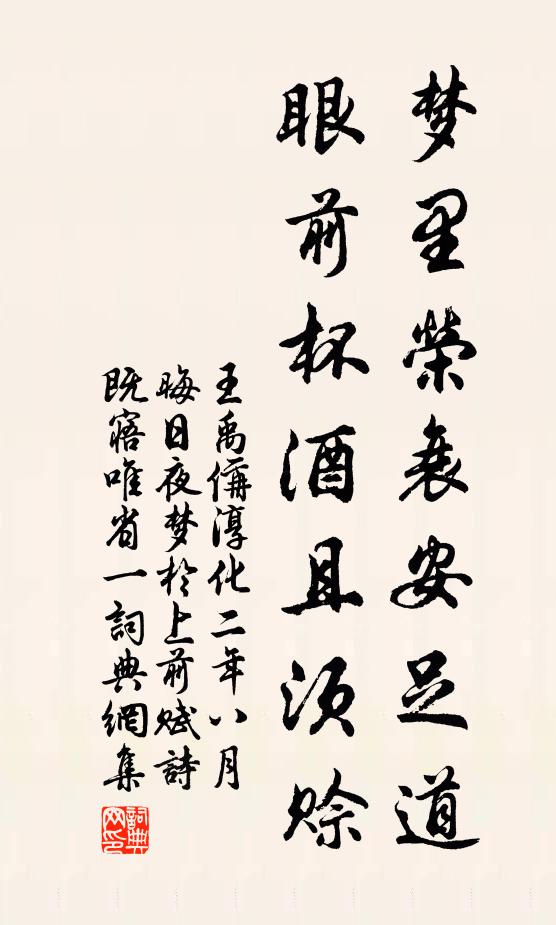 梦里榮衰安足道
眼前杯酒且须赊
王禹偁淳化二年八月
晦日夜梦於上前赋詩
既寤唯省一詞典網集
詞典网印